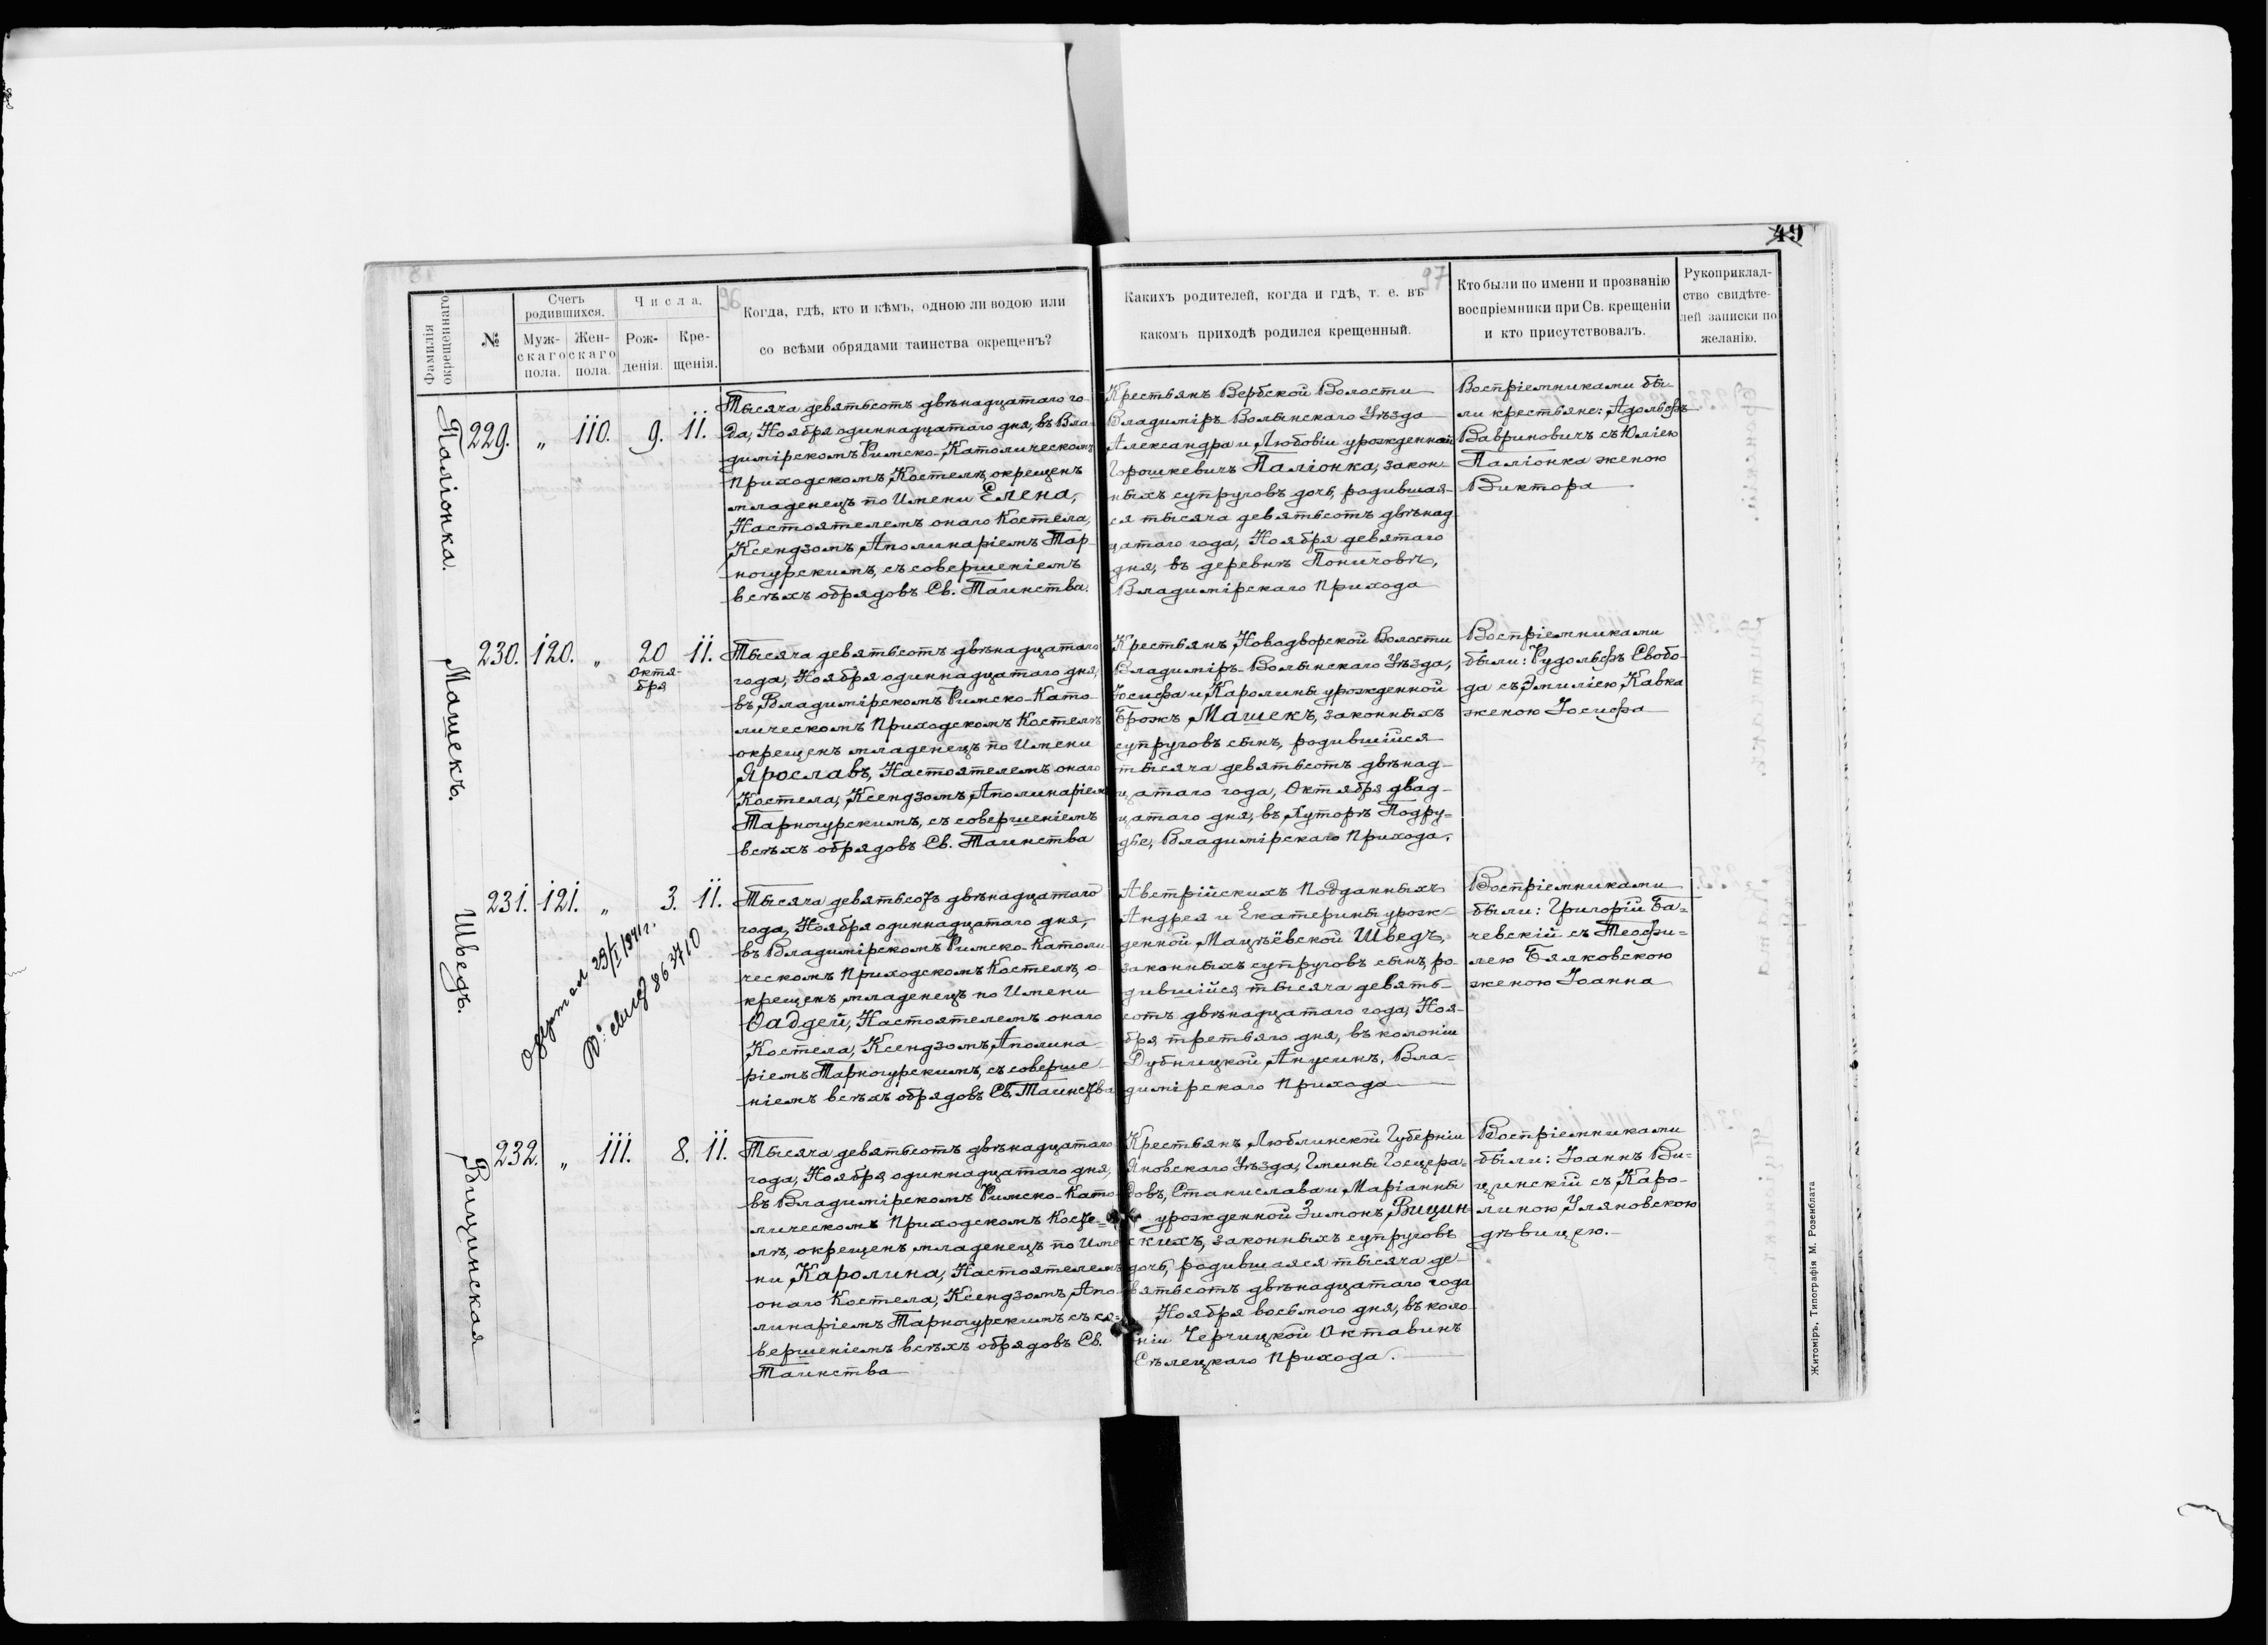 49
96
97
Фамилія
окрещеннаго.
№
Счетъ
родившихся.
Муж-
скаго
пола.
Жен-
скаго
пола.
Числа.
Рож-
денія.
Кре-
щенія.
Когда, гдѣ, кто и кѣмъ, одною ли водою или
со всѣми обрядами таинства окрещенъ?
Какихъ родителей, когда и гдѣ, т. е. въ
какомъ приходѣ родился крещенный.
Кто были по имени и прозванію
воспріемники при Св. крещеніи
и кто присутствовалъ.
Рукоприклад-
ство свидѣте-
лей записки по
желанію.
Паліонка.
229. „ 110. 9. 11.
Тысяча девятьсотъ двѣнадцатаго го-
да, Ноября одиннадцатаго дня, въ Вла-
димірскомъ Римско-Католическомъ
Приходскомъ Костелѣ, окрещенъ
младенецъ по Имени Елена,
Настоятелемъ онаго Костела,
Ксендзомъ Аполинаріемъ Тар-
ногурскимъ, съ совершеніемъ
всѣхъ обрядовъ Св. Таинства.
Крестьянъ Вербской Волости
Владиміръ-Волынскаго Уѣзда
Александра и Любовіи урожденной
Горошкевичъ Паліонка, закон-
ныхъ супруговъ дочь, родившая-
ся тысяча девятьсотъ двѣнад-
цатаго года, Ноября девятаго
дня, въ деревнѣ Поничовѣ,
Владимірскаго Прихода
Воспріемниками бы-
ли крестьяне: Адольфъ
Вавриновичъ съ Юліею
Паліонка женою
Виктора
Машекъ.
230. 120. „ 20 11.
Октя-
бря
Тысяча девятьсотъ двѣнадцатаго
года, Ноября одиннадцатаго дня,
въ Владимірскомъ Римско-Като-
лическомъ Приходскомъ Костелѣ
окрещенъ младенецъ по Имени
Ярославъ, Настоятелемъ онаго
Костела, Ксендзомъ Аполинаріемъ
Тарногурскимъ, съ совершеніемъ
всѣхъ обрядовъ Св. Таинства
Крестьянъ Новадворской Волости
Владиміръ-Волынскаго Уѣзда,
Іосифа и Каролины урожденной
Брожъ Машекъ, законныхъ
супруговъ сынъ, родившійся
тысяча девятьсотъ двѣнад-
цатаго года, Октября двад-
цатаго дня, въ Хуторѣ Подру-
дье, Владимірскаго Прихода.
Воспріемниками
были: Рудольфъ Свобо-
да съ Эмиліею Кавка
женою Іосифа
Шведъ.
231. 121. „ 3. 11.
23/I 1941 г.
№ свид 863710
Тысяча девятьсотъ двѣнадцатаго
года, Ноября одиннадцатаго дня,
въ Владимірскомъ Римско-Католи-
ческомъ Приходскомъ Костелѣ, о-
крещенъ младенецъ по Имени
Ѳаддей, Настоятелемъ онаго
Костела, Ксендзомъ Аполина-
ріемъ Тарногурскимъ, съ соверше-
ніемъ всѣхъ обрядовъ Св. Таинства
Австрійскихъ Подданныхъ
Андрея и Екатерины урож-
денной Мацѣёвской Шведъ,
законныхъ супруговъ сынъ, ро-
дившійся тысяча девять-
сотъ двѣнадцатаго года, Ноя-
бря третьяго дня, въ колоніи
Дубницкой Анусинъ, Вла-
димірскаго Прихода
Воспріемниками
были: Григорій Ба-
чевскій съ Теофи-
лею Бялковскою
женою Іоанна
Вицинская
232. „ 111. 8. 11.
Тысяча девятьсотъ двѣнадцатаго
года, Ноября одиннадцатаго дня,
въ Владимірскомъ Римско-Като-
лическомъ Приходскомъ Косте-
лѣ, окрещенъ младенецъ по Име-
ни Каролина, Настоятелемъ
онаго Костела, Ксендзомъ Апо-
линаріемъ Тарногурскимъ съ со-
вершеніемъ всѣхъ обрядовъ Св.
Таинства
Крестьянъ Люблинской Губерніи
Яновскаго Уѣзда, Гмины Госцера-
довъ, Станислава и Маріанны
урожденной Зимонъ Вицин-
скихъ, законныхъ супруговъ
дочь, родившаяся тысяча де-
вятьсотъ двѣнадцатаго года
Ноября восьмого дня, въ коло-
ніи Черчицкой Октавинъ
Сѣлецкаго Прихода.
Воспріемниками
были: Іоаннъ Ви-
цинскій съ Каро-
линою Уляновскою
дѣвицею.
Житоміръ, Типографія М. Розенблата